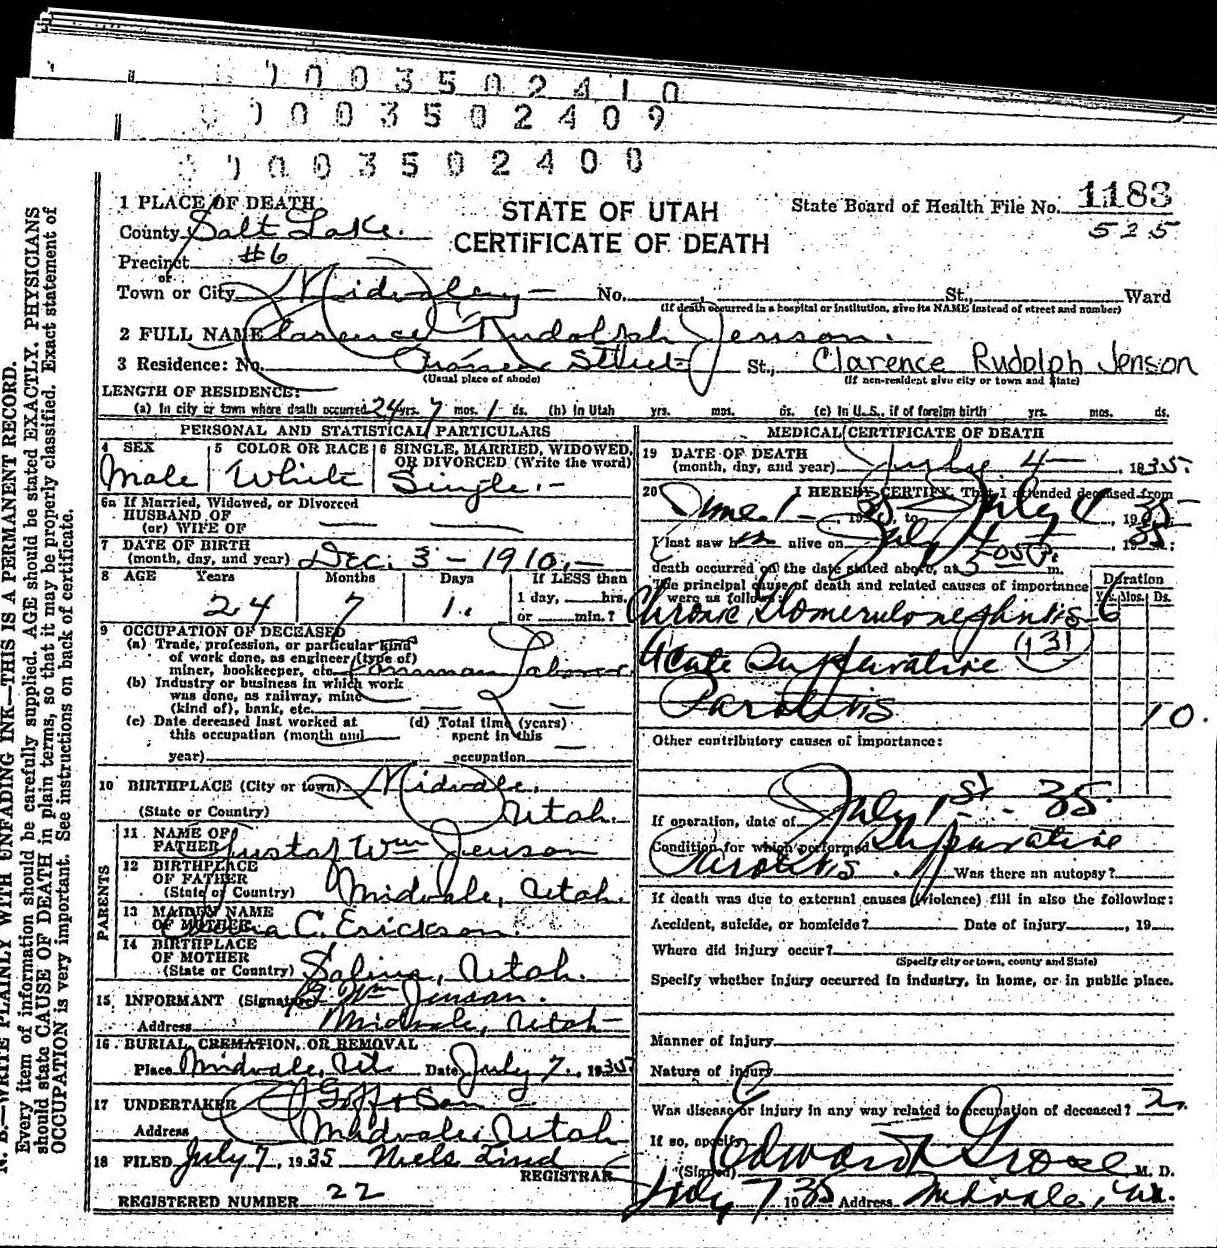 0003502410
0003502409
0003502408
1 PLACE OF DEATH
County Salt Lake.
Precinct #6
or
Town or City Midvale No. St., Ward
(If death occurred in a hospital or institution, give its NAME instead of street and number)
STATE OF UTAH
CERTIFICATE OF DEATH
State Board of Health File No. 1183
525
2 FULL NAME Clarence Rudolph Jenson.
3 Residence: No. Street St., Clarence Rudolph Jenson
(Usual place of abode) (If non-resident give city or town and State)
LENGTH OF RESIDENCE:
(a) In city or town where death occurred 24 yrs. 7 mos. 1 ds. (b) In Utah yrs. mos. ds. (c) In U.S., if of foreign birth yrs. mos. ds.
PERSONAL AND STATISTICAL PARTICULARS
4 SEX Male
5 COLOR OR RACE White
6 SINGLE, MARRIED, WIDOWED, OR DIVORCED (Write the word) Single.
6a If Married, Widowed, or Divorced
HUSBAND OF
(or) WIFE OF
7 DATE OF BIRTH
(month, day, and year) Dec. 3 - 1910.
8 AGE Years Months Days If LESS than
24 7 1. 1 day, hrs.
or min.?
9 OCCUPATION OF DECEASED
(a) Trade, profession, or particular kind
of work done, as engineer (type of)
miner, bookkeeper, etc. Common Laborer
(b) Industry or business in which work
was done, as railway, mine
(kind of), bank, etc.
(c) Date deceased last worked at
this occupation (month and
year)
(d) Total time (years)
spent in this
occupation
10 BIRTHPLACE (City or town) Midvale,
(State or Country) Utah.
PARENTS
11 NAME OF
FATHER Gustaf Wm Jenson
12 BIRTHPLACE
OF FATHER
(State or Country) Midvale, Utah.
13 MAIDEN NAME
OF MOTHER C. Erickson.
14 BIRTHPLACE
OF MOTHER
(State or Country) Salina, Utah.
15 INFORMANT (Signature) G. Wm Jenson.
Address Midvale, Utah
16 BURIAL, CREMATION, OR REMOVAL
Place Midvale, Ut. Date July 7., 1935
17 UNDERTAKER Goff & Son
Address Midvale, Utah
18 FILED July 7, 1935 Niels Lind
REGISTRAR
REGISTERED NUMBER 22
MEDICAL CERTIFICATE OF DEATH
19 DATE OF DEATH
(month, day, and year) July 4 - , 1935.
20 I HEREBY CERTIFY, That I attended deceased from
June 1 - , 1935 to July 4, 1935
I last saw him alive on July 4, 1935.
death occurred on the date stated above, at 5-05 P. m.
The principal cause of death and related causes of importance
were as follows: Duration
Yrs. Mos. Ds.
Chronic Glomerulonephritis 6
Acute Suppurative (131)
Parotitis 10.
Other contributory causes of importance:
If operation, date of July 1st - 35.
Condition for which performed Suppurative
Parotitis. Was there an autopsy?
If death was due to external causes (violence) fill in also the following:
Accident, suicide, or homicide? Date of injury , 19
Where did injury occur?
(Specify city or town, county and State)
Specify whether injury occurred in industry, in home, or in public place.
Manner of Injury
Nature of injury
Was disease or injury in any way related to occupation of deceased?
If so, specify
(Signed) Edward Grose M. D.
July 7 1935 Address Midvale, Ut.
N. B.—WRITE PLAINLY WITH UNFADING INK—THIS IS A PERMANENT RECORD.
Every item of information should be carefully supplied. AGE should be stated EXACTLY. PHYSICIANS
should state CAUSE OF DEATH in plain terms, so that it may be properly classified. Exact statement of
OCCUPATION is very important. See instructions on back of certificate.